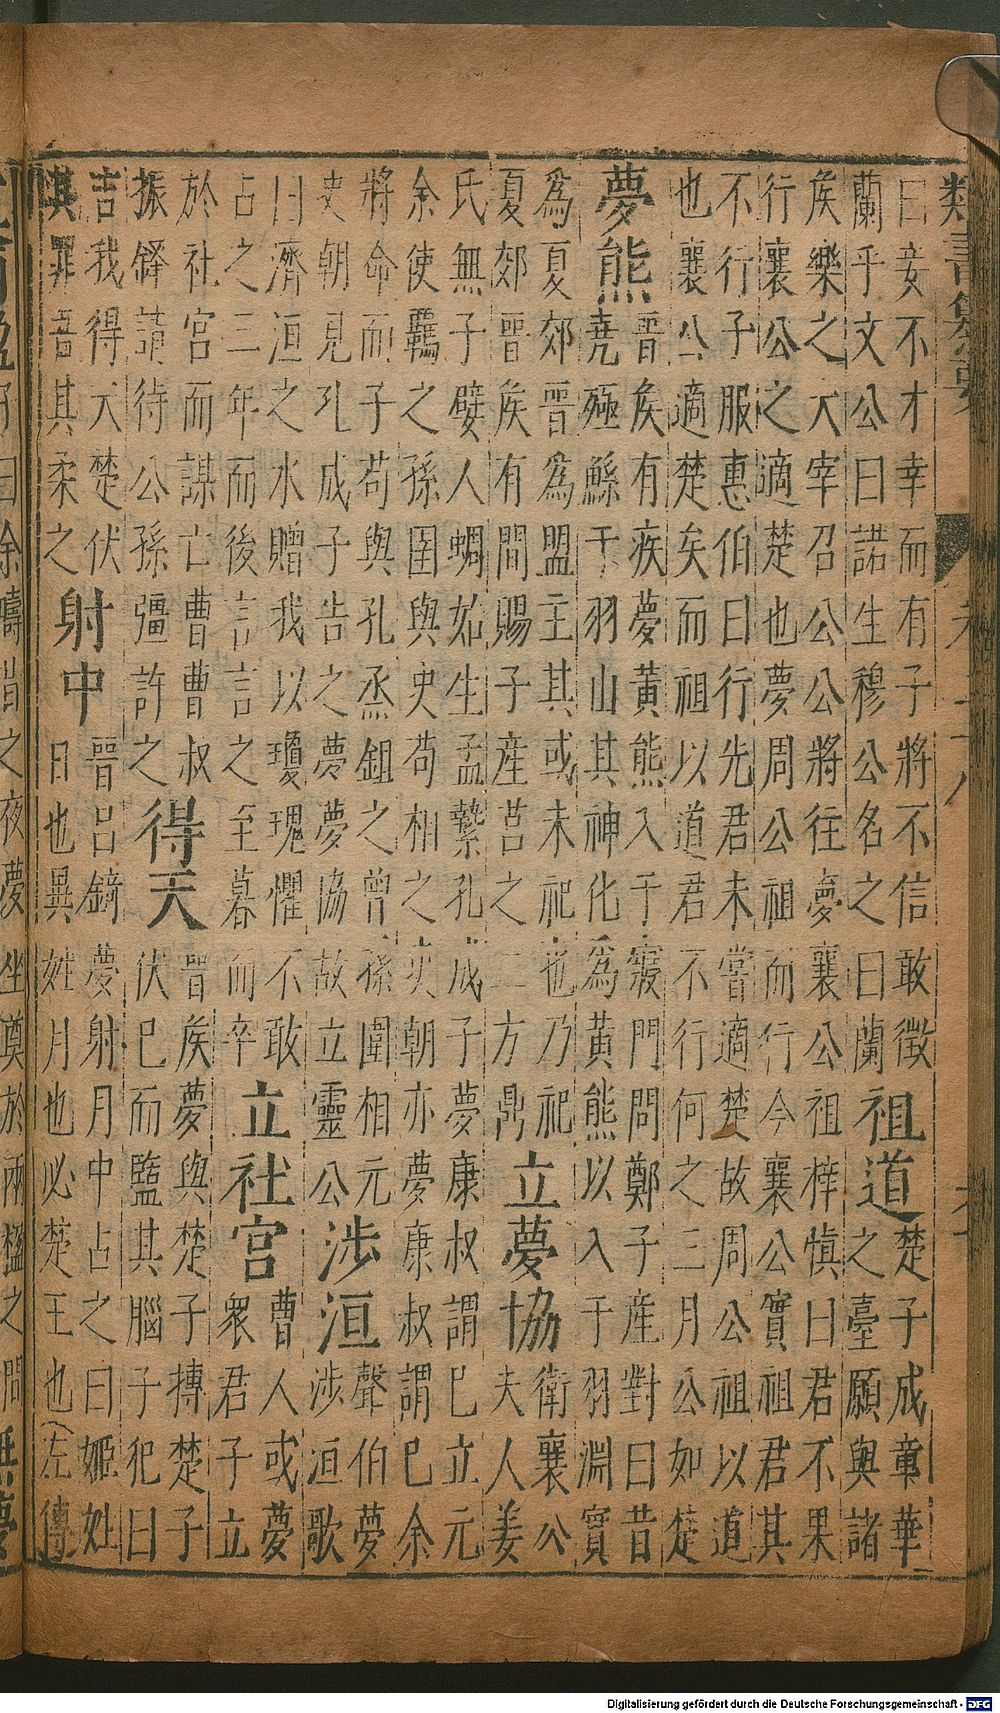 類書纂要
曰妾不才幸而有子將不信敢徵
蘭乎文公曰諾生穆公名之曰蘭
祖道
楚子成章華
之臺願與諸
矦樂之大宰召公公將往夢襄公祖梓慎曰君不果
行襄公之適楚也夢周公祖而行今襄公實祖君其
不行子服惠伯曰行先君未嘗適楚故周公祖以道
也襄公適楚矣而祖以道君不行何之三月公如楚
夢熊
晉矦有疾夢黃熊入于寢門問鄭子產對曰昔
堯殛鯀于羽山其神化為黃熊以入于羽淵實
為夏郊晉為盟主其或未祀也乃祀
夏郊晉矦有間賜子產莒之二方鼎
立夢協
衛襄公
夫人姜
氏無子嬖人婤姶生孟縶孔成子夢康叔謂已立元
余使羈之孫圉與史苟相之史朝亦夢康叔謂已余
將命而子苟與孔烝鉏之曾孫圍相元
史朝見孔成子告之夢夢協故立靈公
涉洹
聲伯夢
涉洹歌
曰濟洹之水贈我以瓊瑰懼不敢
占之三年而後言言之至暮而卒
立社宮
曹人或夢
衆君子立
於社宮而謀亡曹曹叔
振鐸請待公孫彊許之
得天
晉矦夢與楚子搏楚子
伏已而盬其腦子犯曰
吉我得天楚伏
其罪吾其柔之
射中
晉呂錡夢射月中占之曰姬姓
日也異姓月也必楚王也(左傳)
曰余疇昔之夜夢坐奠於兩楹之間
Digitalisierung gefördert durch die Deutsche Forschungsgemeinschaft - DFG